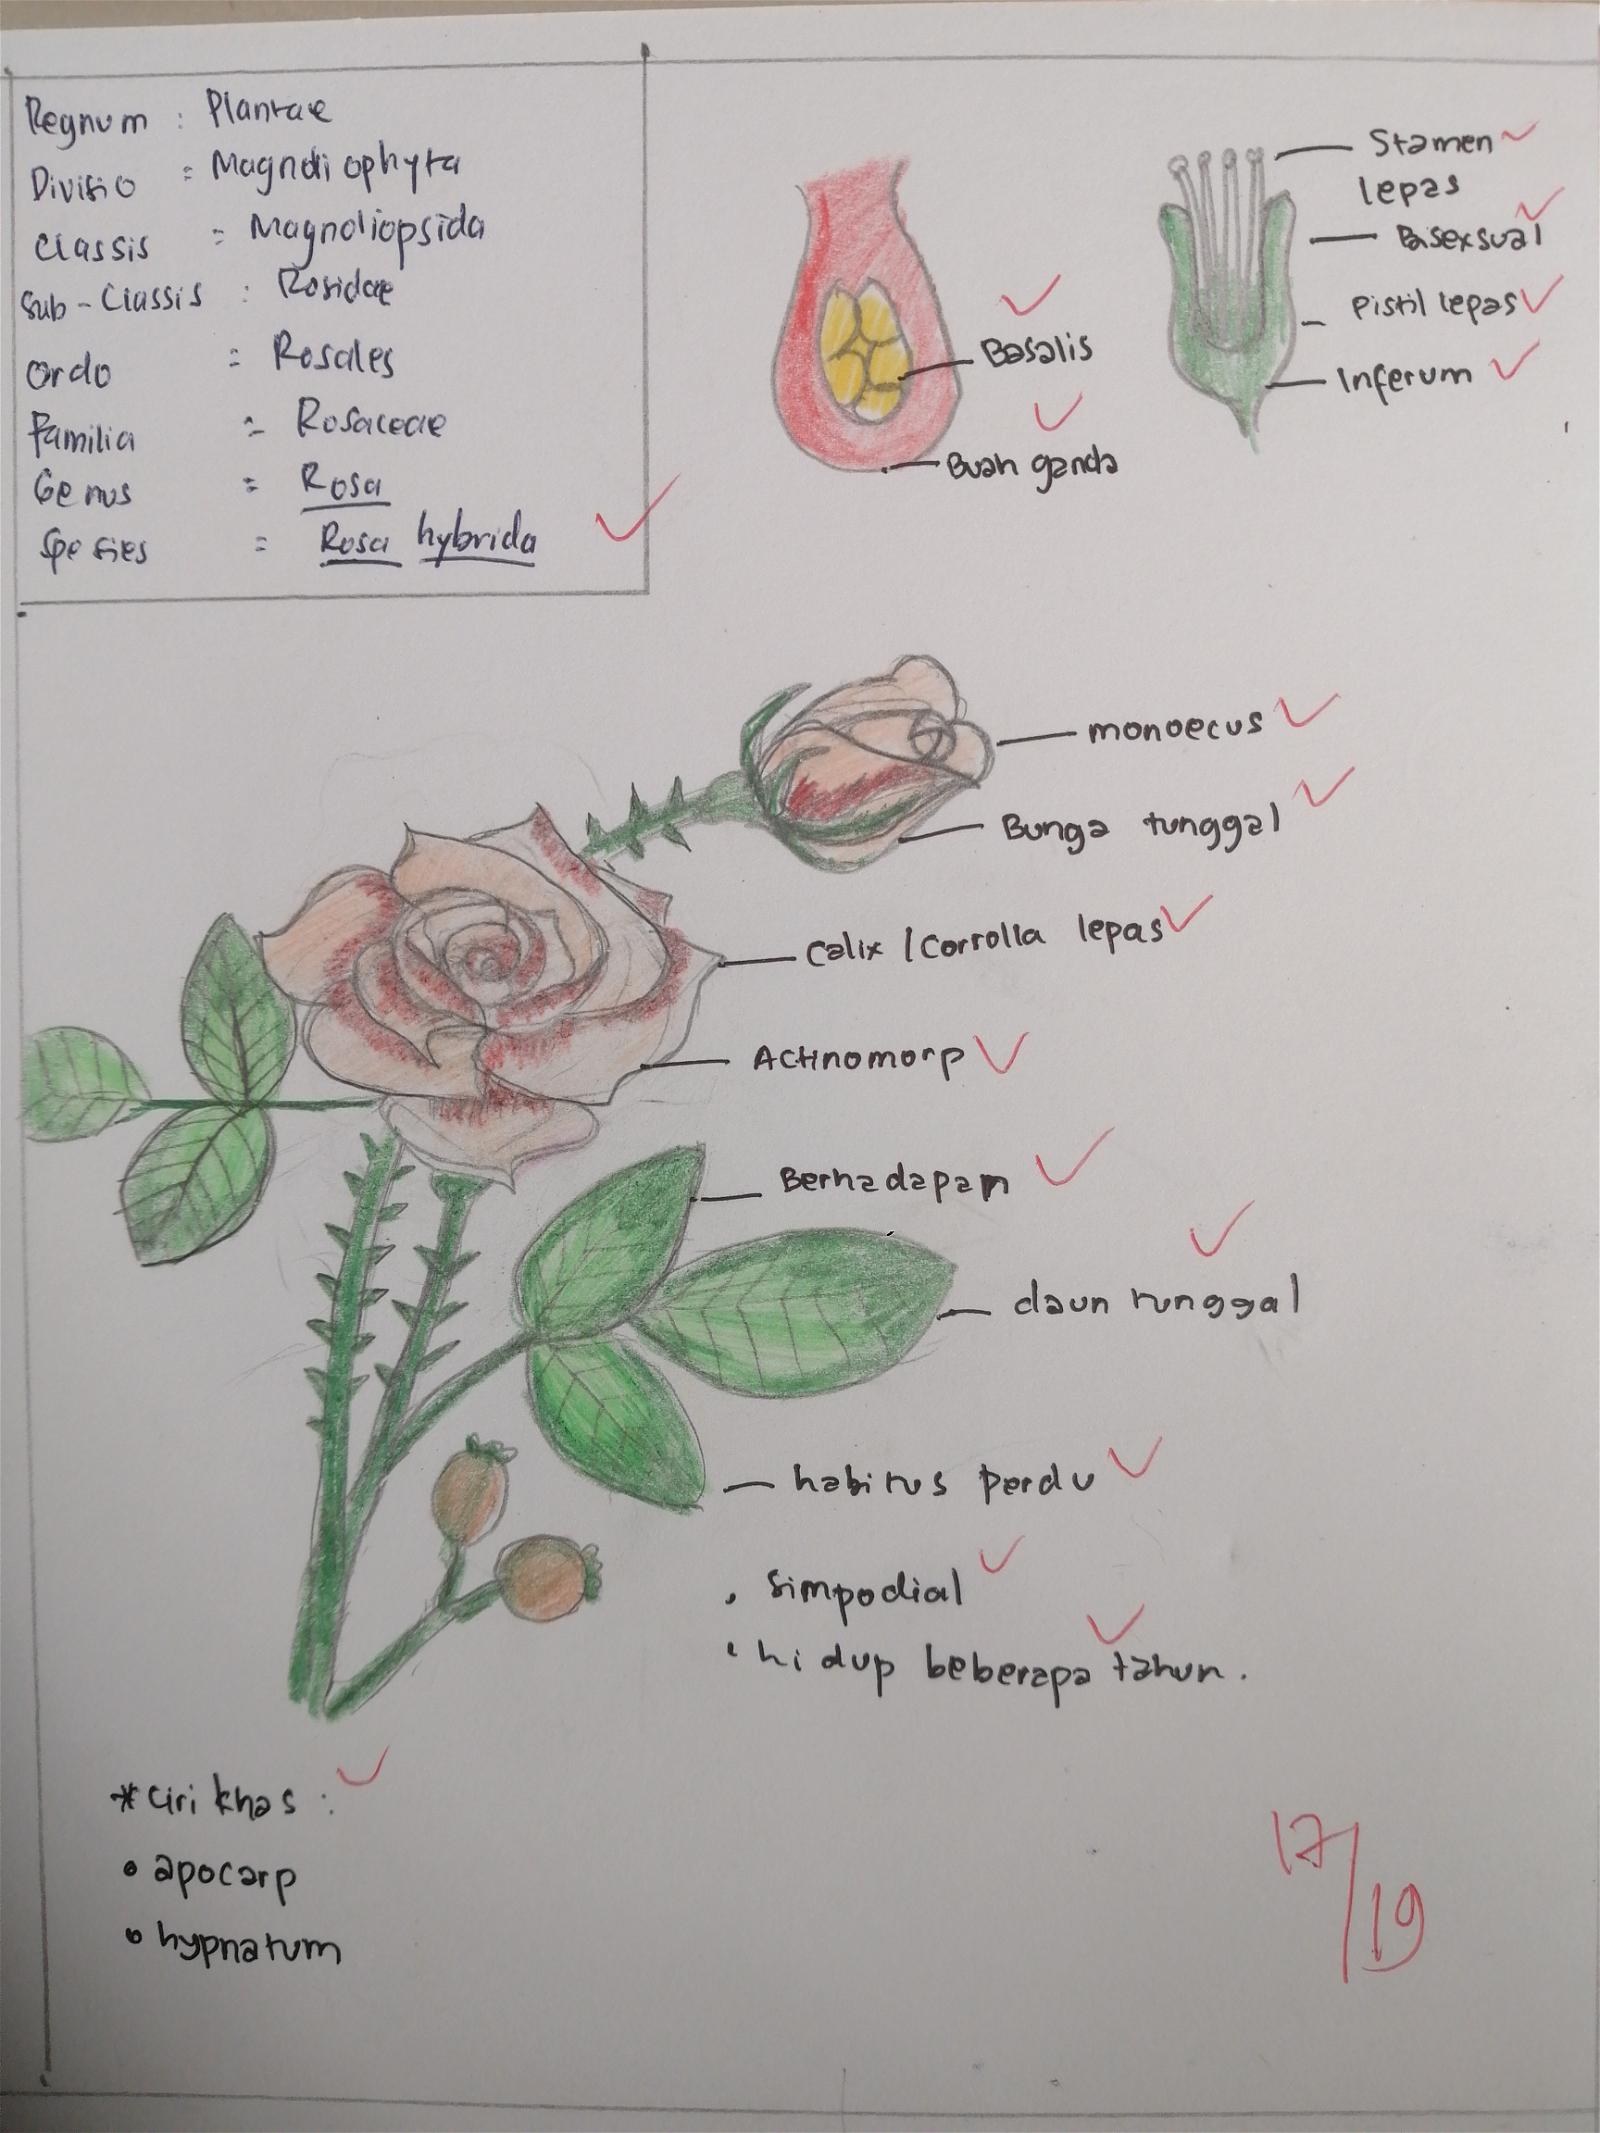 Regnum : Plantae
Divisio : Magnoliophyta
Classis : Magnoliopsida
Sub-Classis : Rosidae
Ordo : Rosales
Familia : Rosaceae
Genus : Rosa
Spesies : Rosa hybrida
Basalis
Buah ganda
Stamen
lepas
Bisexsual
Pistil lepas
Inferum
monoecus
Bunga tunggal
Calix / Corrolla lepas
Actinomorp
Berhadapan
daun tunggal
habitus perdu
• Simpodial
• hidup beberapa tahun.
* Ciri khas :
• apocarp
• hypnatum
17/19